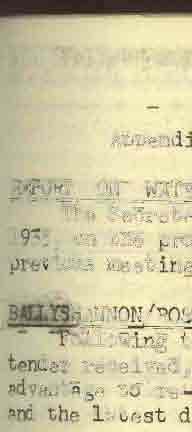 Appendi
REPORT ON WITH
The Secreta
1935, on the pro
previous meeting
BALLYSHANNON/BOS
Following t
tender received,
advantage to re-
and the latest d